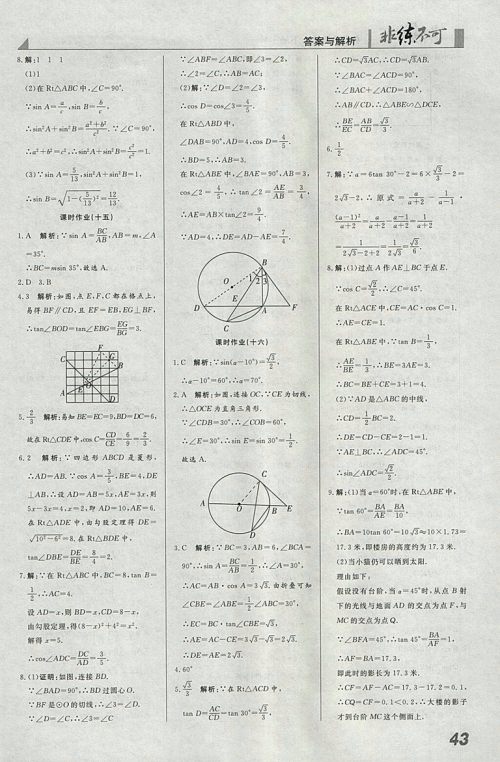 答案与解析
非练不可
8.解:1 1 1
(1)
(2)在Rt△ABC中,∠C=90°.
∵sin A=a/c,sin B=b/c,
∴sin²A+sin²B=(a²+b²)/c².∵∠C=90°.
∴a²+b²=c²,∴sin²A+sin²B=c²/c²=1.
(3)∵sin A=5/13,sin²A+sin²B=1,
∴sin B=√(1-(5/13)²)=12/13.
课时作业(十五)
1.A 解析:∵sin A=BC/AB,AB=m,∠A
=35°.
∴BC=msin 35°.故选A.
2.D 3.B
4.3 解析:如图,点E,F,C都在格点上,
易得BF∥CD,且EF=EB,EG⊥BF,
∴tan∠BOD=tan∠EBG=EG/BG=3.
C F G A E B O D
5.2/3 解析:易知BE=EC=9,BD=DC=6,
故在Rt△CDE中,cos C=CD/CE=6/9=2/3.
6.2 解析:∵四边形ABCD是菱形,
∴AD=AB.∵cos A=3/5,BE=4,DE
⊥AB,∴设AD=AB=5x,AE=3x,则
5x-3x=4,x=2,即AD=10,AE=6.
在Rt△ADE中,由勾股定理得DE=
√(10²-6²)=8.在Rt△BDE中,
tan∠DBE=DE/BE=8/4=2.
7.解:∵在Rt△ABC中,BC=8,tan B=
1/2,∴AC=4.
设AD=x,则BD=x,CD=8-x,
由勾股定理,得(8-x)²+4²=x².
解得x=5.
∴cos∠ADC=DC/AD=3/5.
8.(1)证明:如图,连接BD.
∵∠BAD=90°,∴BD过圆心O.
∵BF是⊙O的切线,∴∠3=∠D.
∵∠D=∠C,∴∠3=∠C
∵∠ABF=∠ABC,即∠3=∠2,
∴∠2=∠C,∴AB=AC;
(2)解:∵∠D=∠2=∠3,
∴cos D=cos∠3=4/5.
在Rt△ABD中,
∠DAB=90°,AD=4,cos D=4/5,
∴BD=5,∴AB=3.
在Rt△ABE中,∠BAE=90°,AB=3,
cos∠2=4/5,∴tan∠2=AE/AB=3/4,
∴AE=AB×tan∠2=9/4.
∵AD=4,∴DE=AD-AE=7/4.
B O 1 2 3 E D A F C
课时作业(十六)
1.C 解析:∵sin(α-10°)=√3/2,
∴α-10°=60°,∴α=70°.
2.A 解析:如图,连接OC,∵CE为切线,
∴△OCE为直角三角形.
∵∠CDB=30°,∴∠COB=60°,
∴∠E=30°,∴sin E=sin 30°=1/2.
故选A.
C A O B E D
3.C 解析:∵BC=3,AB=6,∠BCA=
90°,∴sin A=BC/AB=1/2,∴∠A=30°.
∴AC=AB·cos A=3√3.由折叠可知
∠CBE=∠ABE=1/2∠ABC=30°,
∴EC=BC·tan∠CBE=√3,
∴AE=AC-CE=3√3-√3=2√3.
∴DE=AE=2√3.
4.60°
5.√3/3 解析:∵在Rt△ACD中,
tan D=AC/CD=tan 30°=√3/3,
∴CD=√3AC,∴CD=√3AB.
∵∠BAC=∠ACD=90°,
∴∠BAC+∠ACD=180°,
∴AB∥CD,∴△ABE∽△DCE,
∴BE/EC=AB/CD=√3/3.
6.1/2
7.解:∵a=6tan 30°-2=6×√3/3-2=
2√3-2,∴原式=a/(a+2)-1/(a-1)·
(a-1)²/(a+2)=a/(a+2)-(a-1)/(a+2)=1/(a+2)
=1/(2√3-2+2)=1/(2√3)=√3/6.
8.解:(1)过点A作AE⊥BC于点E.
∵cos C=√2/2,∴∠C=45°.
在Rt△ACE中,CE=AC·cos C=1.
∴AE=CE=1.
在Rt△ABE中,∵tan B=1/3,
∴AE/BE=1/3,∴BE=3AE=3.
∴BC=BE+CE=3+1=4.
(2)∵AD是△ABC的中线,
∴CD=1/2BC=2.
∴DE=CD-CE=2-1=1.
∵AE⊥BC,∴∠ADC=45°.
∴sin∠ADC=√2/2.
9.解:(1)当α=60°时,在Rt△ABE中,
∵tan 60°=BA/AE=BA/10,
∴BA=10tan 60°=10√3≈10×1.73=
17.3米.即楼房的高度约为17.3米.
(2)当小猫仍可以晒到太阳.
理由如下:
假设没有台阶,当α=45°时,从点B射
下的光线与地面AD的交点为点F,与
MC的交点为点Q.
∵∠BFA=45°,∴tan 45°=BA/AF=1.
∴AF=BA=17.3,
即此时的影长为17.3米.
∴CF=AF-AC=17.3-17.2=0.1,
∴CQ=CF=0.1<0.2,∴大楼的影子
才到台阶MC这个侧面上.
43